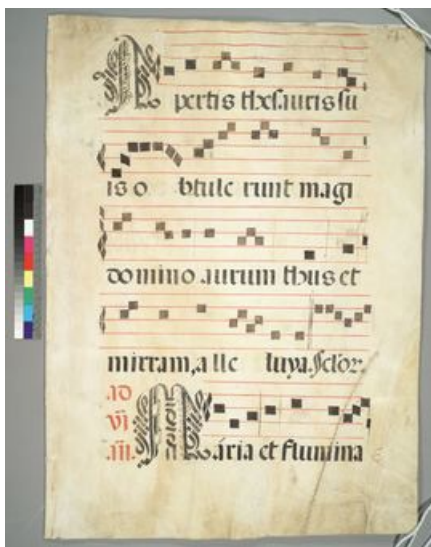 Apertis thesauris su
is o btule runt magi
domino aurum thus et
mirram, alle luya. Sclor.
.ad
vi
.iii. Maria et flumina